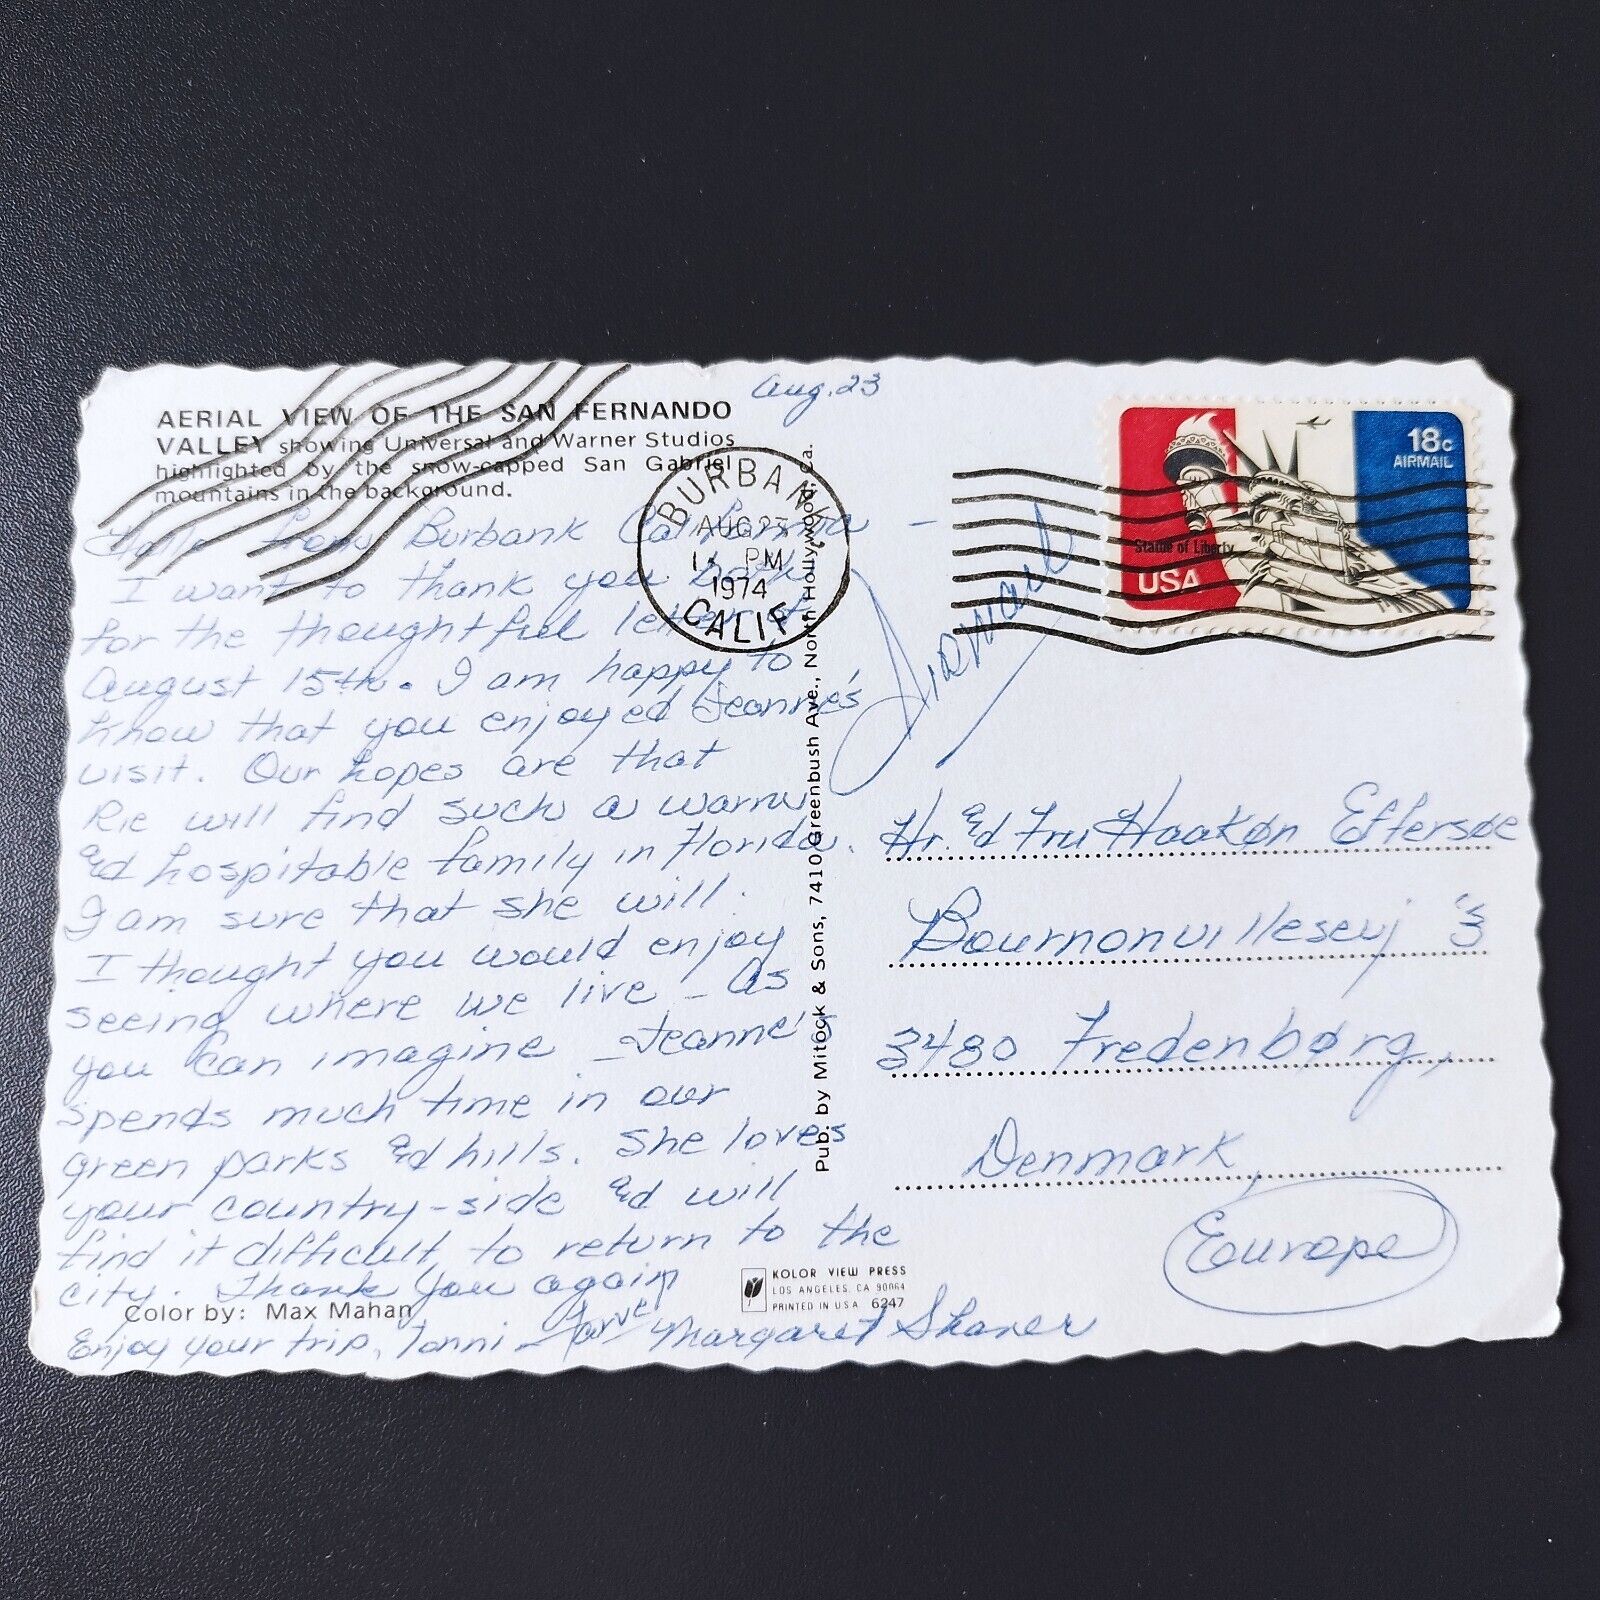 Aug. 23
AERIAL VIEW OF THE SAN FERNANDO
VALLEY showing Universal and Warner Studios
highlighted by the snow-capped San Gabriel
mountains in the background.
Hello from Burbank California –
I want to thank you both
for the thoughtful letter of
August 15th. I am happy to
know that you enjoyed Jeanne's
visit. Our hopes are that
Rie will find such a warm
and hospitable family in Florida.
I am sure that she will.
I thought you would enjoy
seeing where we live – As
you can imagine – Jeanne's
spends much time in our
green parks and hills. She loves
your country-side and will
find it difficult to return to the
city. Thank you again
Color by: Max Mahan
Enjoy your trip, – Margaret Shaner
BURBANK
AUG 23
PM
1974
CALIF
Pub. by Mitock & Sons, 7410 Greenbush Ave., North Hollywood, Ca.
KOLOR VIEW PRESS
LOS ANGELES, CA 90064
PRINTED IN USA 6247
18c
AIRMAIL
Statue of Liberty
USA
Airmail
Hr. and Fru Haakøn Eftersøe
Bournonvillesevj 3
3480 Fredenbørg,
Denmark,
Eourope